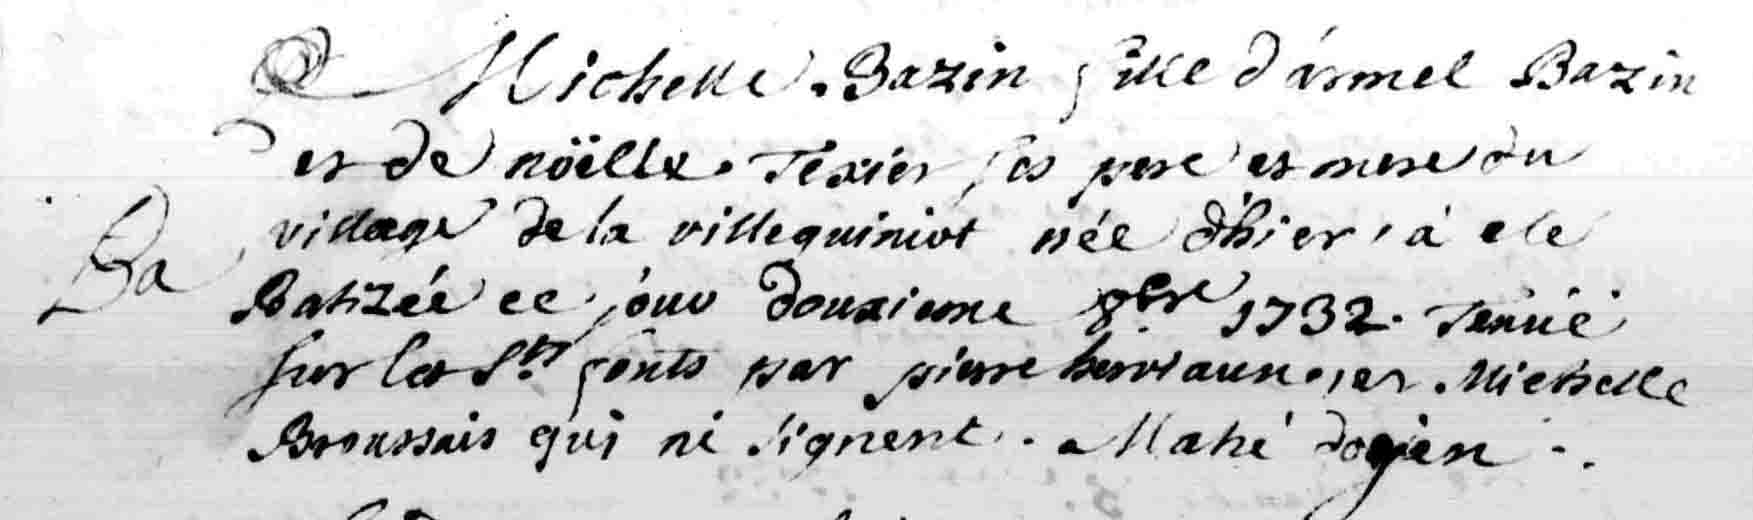 Michelle Bazin fille d'armel Bazin
et de nöelle Texier ses pere et mere du
village de la villequiniot née d'hier, a eté
Ba
Batizée ce jour douxieme 8bre 1732. Tenüe
sur les Sts fonts par pierre herviaux, et Michelle
Broussais qui ne signent. Mahé doyen.